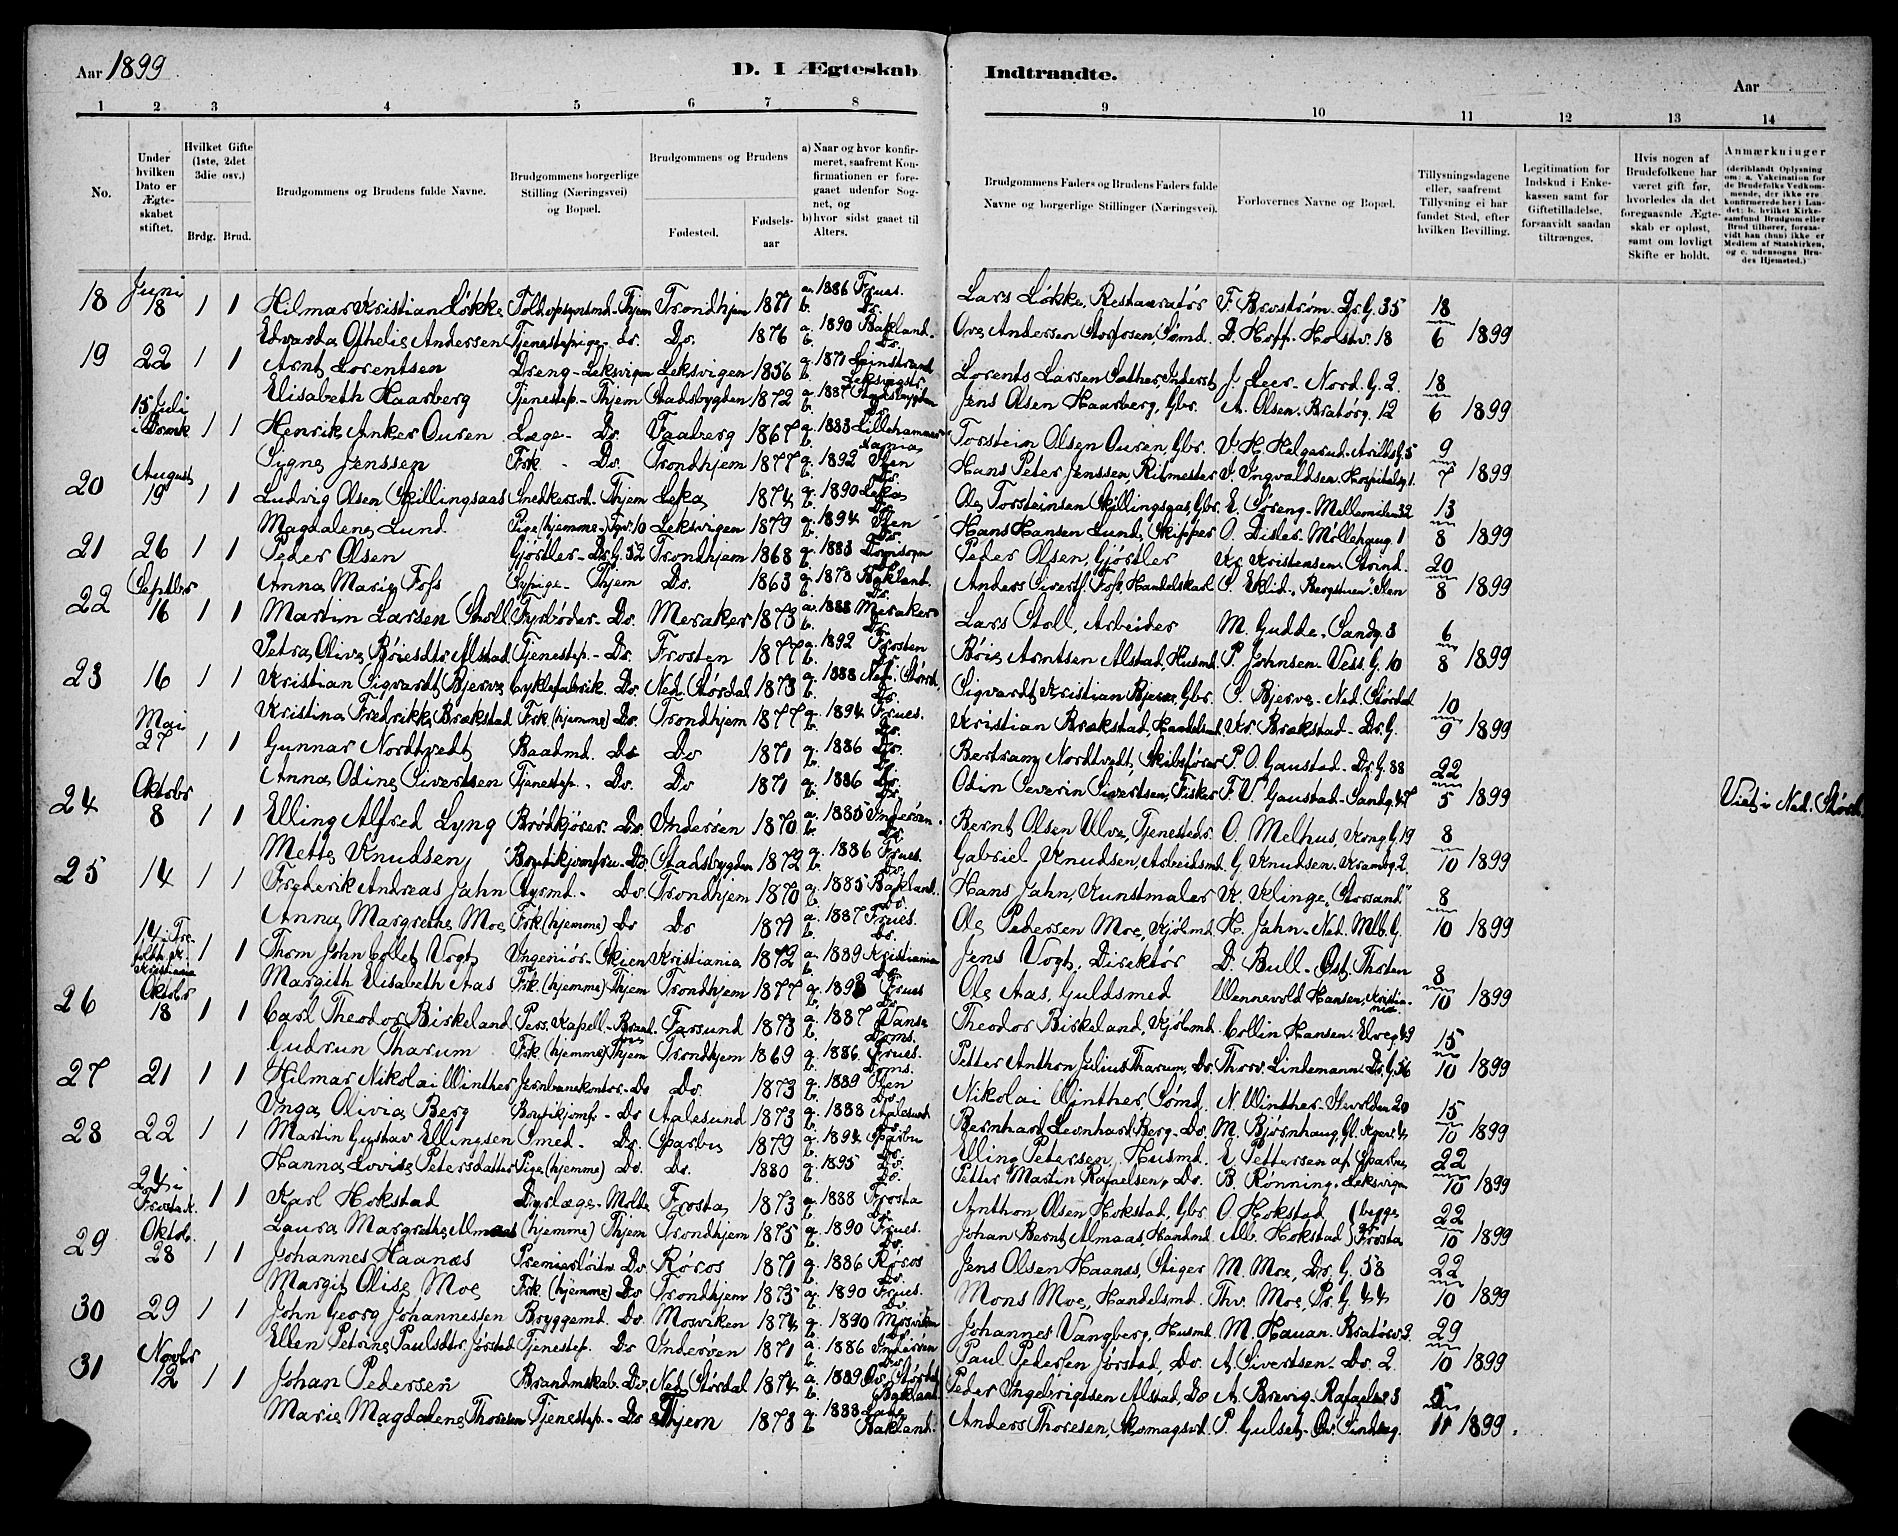 Aar 1899
D. I Ægteskab Indtraadte.
Aar
1 2 3 4 5 6 7 8 9 10 11 12 13 14
No.
Under hvilken Dato er Ægteskabet stiftet.
Hvilket Gifte (1ste, 2det 3die osv.)
Brdg. Brud.
Brudgommens og Brudens fulde Navne.
Brudgommens borgerlige Stilling (Næringsvei) og Bopæl.
Brudgommens og Brudens
Fødested.
Fødselsaar
a) Naar og hvor konfirmeret, saafremt Konfirmationen er foregaaet udenfor Sognet, og
b) hvor sidst gaaet til Alters.
Brudgommens Faders og Brudens Faders fulde Navne og borgerlige Stillinger (Næringsvei).
Forlovernes Navne og Bopæl.
Tillysningsdagene eller, saafremt Tillysning ei har fundet Sted, efter hvilken Bevilling.
Legitimation for Indskud i Enkekassen samt for Giftetilladelse, forsaavidt saadan tiltrænges.
Hvis nogen af Brudefolkene har været gift før, hvorledes da det foregaaende Ægteskab er opløst, samt om lovligt Skifte er holdt.
Anmærkninger (deriblandt Oplysning om: a. Vakcination for de Brudefolks Vedkommende, der ikke ere konfirmerede her i Landet; b. hvilket Kirkesamfund Brudgom eller Brud tilhører, forsaavidt han (hun) ikke er Medlem af Statskirken, og c. udensogns Brudes Hjemsted.)
18 Juni 18 1 1 Hilmar Kristian Løkke Toldopsynsmd. Thjem Trondhjem 1871 a. 1886 Frues. b. Do. Lars Løkke, Restauratør F. Brostrøm. Dr.G. 35 18
Edvarda Othelie Andersen Tjenestepige. do. Do. 1876 a. 1890 Bakland. b. Do. Ove Andersen Sømd. D. Hoff. Holstv. 18 6 1899
19 22 1 1 Arnt Lorentsen Dreng - Leksvigen Leksvigen 1856 a. 1871 Leinstrand b. Leksvigstr. Lorents Larsen J. Leer. Nord. G. 2. 18
Elisabeth Haarberg Tjenestep. - Thjem Stadsbygden 1872 a. 1887 Stadsbygden b. Do. Jens Olsen Haarberg, Gbr. A. Olsen. Bratørg. 12 6 1899
15 Juli i Domk. 1 1 Henrik Anker Ouren Læge - Do. Faaberg 1867 a. 1883 Lillehammer b. Torstein Olsen Ouren, Gbr. 9
Signe Jenssen Frk. - Do. Trondhjem 1877 a. 1892 Ilen b. Do. Hans Peter Jenssen, Ritmester I. Ingvaldsen. Hospitalsg. 1. 7 1899
20 August 19 1 1 Ludvig Olsen Skillingsaas Snedkersvd. Thjem Leka 1874 a. 1890 Leka b. Do. Ole Torsteinsen Skillingsaas, Gbr. E. Søreng. Mellemilen 32 13
Magdalena Lund Pige (hjemme) Leksvigen 1879 a. 1894 Ilen b. Do. Hans Hansen Lund, Skipper O. Møllehaug 1 8 1899
21 26 1 1 Peder Olsen Gjørtler. Dr.G. 32 Trondhjem 1868 a. 1883 b. Do. Peder Olsen, Gjørtler Kr. Kristensen. Strind. 20
Anna Marie Foss Sypige - Thjem Do. 1863 a. 1878 Bakland. b. Do. Anders Sivertss. Foss, Handelskarl Ilen 8 1899
22 Septbr 16 1 1 Martin Larsen Stoll Fyrbøder. Do. Meraker 1873 a. 1888 Meraker b. Do. Lars Stoll, Arbeider M. Gudde. Sandg. 3 6
Petra Olive Bøiesdtr Alstad Tjenestep. - Do. Frosten 1877 a. 1892 Frosten b. Do. Bøie Arntsen Alstad, Husmd. P. Johnsen. Vess.G. 10 8 1899
23 16 1 1 Kristian Sigvardt Bjerve Cyklefabrik. Do. Ned. Størdal 1873 a. 1888 Ned. Størd. b. Do. Sigvardt Kristian Bjerve, Gbr. S. Bjerve. Ned. Størdal 10
Kristina Fredrikke Brækstad Frk. (hjemme) Do. Trondhjem 1877 a. 1894 Frues. b. Do. Kristian Brækstad, Handelsmd. Kr. Brækstad. Dr.G. 9 1899
Mai 27 1 1 Gunnar Nordtvedt Baadmd. Do Do 1871 a. 1886 Do. b. Do. Bertram Nordtvedt, Skibsfører P. O. Gaustad. Dr.G. 38 22
Anna Odine Sivertsen Tjenestep. - Do. Do 1871 a. 1886 Do. b. Do. Odin Severin Sivertsen, Fisker F. V. Gaustad. Sandg. 47 5 1899
24 Oktobr 8 1 1 Elling Alfred Lyng Brødkjører. Do. Inderøen 1870 a. 1885 Inderøen. b. Do. Bernt Olsen Ulve, Tjenestedr. O. Melhus, Kong.G. 19 8 Viet i Ned. Størd.
Mette Knudsen Butikjomfru. Do. Stadsbygden 1872 a. 1886 Frues. b. Do. Gabriel Knudsen, Arbeidsmd. G. Knudsen. Krambg. 2. 10 1899
25 14 1 1 Frederik Andreas Jahn Styrmd. Do. Trondhjem 1870 a. 1885 Bakland. b. Do. Hans Jahn, Kunstmaler K. Klinge, "Storsand" 8
Anna Margrethe Moe Frk. (hjemme) Do Do 1871 a. 1887 Frues. b. Do. Ole Pedersen Moe, Kjølmd. H. Jahn. Ned. Mlb.G. 10 1899
14 i Kristiania 1 1 Thom John Collet Vogt Ingeniør. Skien Kristiania 1872 a. 1889 Kristiania b. Do. Jens Vogt, Direktør D. Bull. 8
Margith Elisabeth Aas Frk. (hjemme) Thjem Trondhjem 1877 a. 1893 Frues b. Do. Ole Aas, Guldsmed Wennevold Hansen, Kristiania. 10 1899
26 Oktobr 18 1 1 Carl Theodor Birkeland Pers. Kapell. Farsund 1873 a. 1887 Vanse b. Doms. Theodor Birkeland, Kjøbmd. Collin Hansen. Elveg. 49 15
Gudrun Tharum Frk. (hjemme) Thjem Trondhjem 1869 a. 1886. Frues. b. Doms. Petter Anthon Julius Tharum, Do. Thorv. Lindemann. Dr.G. 56 10 1899
27 21 1 1 Hilmar Nikolai Winther Jernbanekontor. Do Do. 1873 a. 1889 Ilen b. Do. Nikolai Winther, Sømd. N. Winther. 20 15
Inga Olivia Berg Butikjomf. - Do Aalesund 1873 a. 1888 Aalesund b. Do. Bernhard Leonhard Berg. Do. M. Bjørnhaug, 10 1899
28 22 1 1 Martin Gustav Ellingsen Smed. Do. Sparbu 1879 a. 1894 Sparbu b. Do. Elling Petersen, Husmd. E. Pettersen af Sparbu 22
Hanna Lovise Petersdatter Pige (hjemme) Do. Do. 1880 a. 1895 Do. b. Do. Petter Martin Rafaelsen, Do. B. Rønning. Leksvigen 10 1899
24 i Frosta K. 1 1 Karl Hokstad Dyrlæge. Molde Frosta 1873 a. 1888 Frosta b. Do. Anthon Olsen Hokstad, Gbr. O. Hokstad (begge 22
Laura Margrethe Almaas (hjemme) Thjem Trondhjem 1875 a. 1890 Frues. b. Do. Johan Bernt Almaas, Handmd. Alb. Hokstad ) Frosta 10 1899
29 Oktob. 28 1 1 Johannes Haanæs Premierløitn. Do. Røros 1871 a. 1886 Røros b. Do Jens Olsen Haanæs, Stiger M. Moe, Dr.G. 58 22
Margit Olise Moe Frk. (hjemme) Do Trondhjem 1875 a. 1890 Frues. b. Do. Mons Moe, Handelsmd. Thv. Moe, Pr.G. 44 10 1899
30 29 1 1 John Georg Johannessen Bryggemd. Do. Mosviken 1874 a. 1890 Mosviken b. Do. Johannes Vangberg, Husmd. M. Hauan. Bratørv. 2. 29
Ellen Petrine Paulsdtr. Jørstad Tjenestep. Do Inderøen 1871 a. 1886 Inderøen b. Do. Paul Pedersen Jørstad, Do. A. Sivertsen. Do. 2. 10 1899
31 Novbr 12 1 1 Johan Pedersen Brandmskab. Do. Ned. Størdal 1874 a. 1889 Øv. Størdal b. Bakland Peder Ingebrigtsen Alstad, Do A. Brevig. 3 5
Marie Magdalene Thoresen Tjenestep. - Do Thjem 1873 a. 1888 Lade b. Bakland. Anders Thoresen, Skomagsvd. P. Gulset. 11 1899.